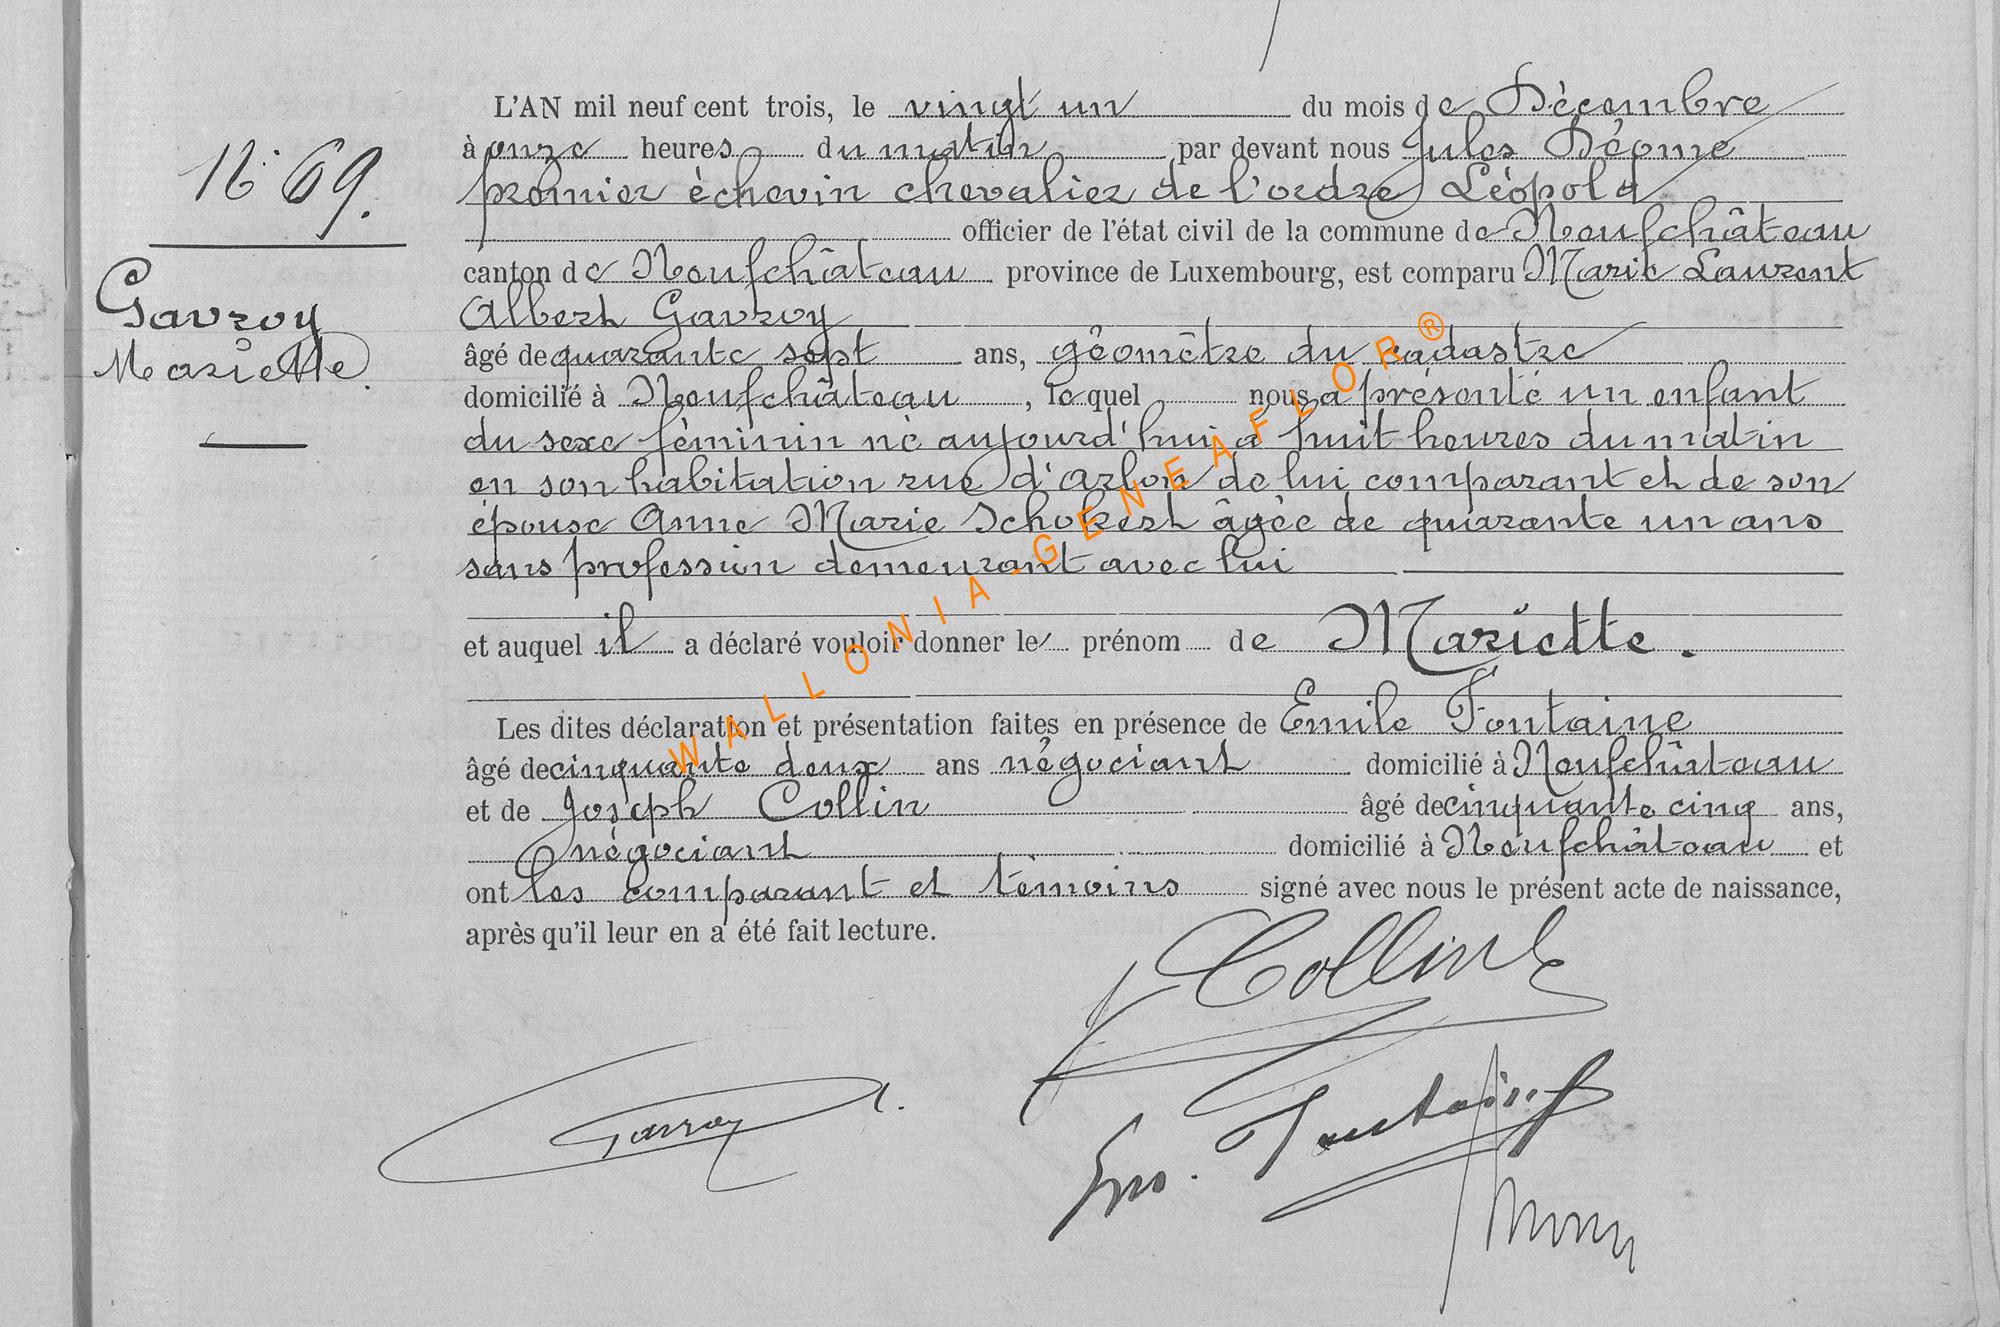 L'AN mil neuf cent trois, le vingt un du mois de Décembre
à onze heures du matin par devant nous Jules Déome
premier échevin chevalier de l'ordre Léopold
officier de l'état civil de la commune de Neufchâteau
canton de Neufchâteau province de Luxembourg, est comparu Marie Laurent
Albert Gavroy
âgé de quarante sept ans, géomètre du cadastre
domicilié à Neufchâteau, lequel nous a présenté un enfant
du sexe féminin né aujourd'hui à huit heures du matin
en son habitation rue d'Arlon de lui comparant et de son
épouse Anne Marie Schokert âgée de quarante un ans
sans profession demeurant avec lui
et auquel il a déclaré vouloir donner le prénom de Mariette.
Les dites déclaration et présentation faites en présence de Emile Fontaine
âgé de cinquante deux ans négociant domicilié à Neufchâteau
et de Joseph Collin âgé de cinquante cinq ans,
négociant domicilié à Neufchâteau et
ont les comparant et témoins signé avec nous le présent acte de naissance,
après qu'il leur en a été fait lecture.
N° 69.
Gavroy
Mariette.
Collin
Gavroy
Fontaine
WALLONIA-GENEAFLOR®